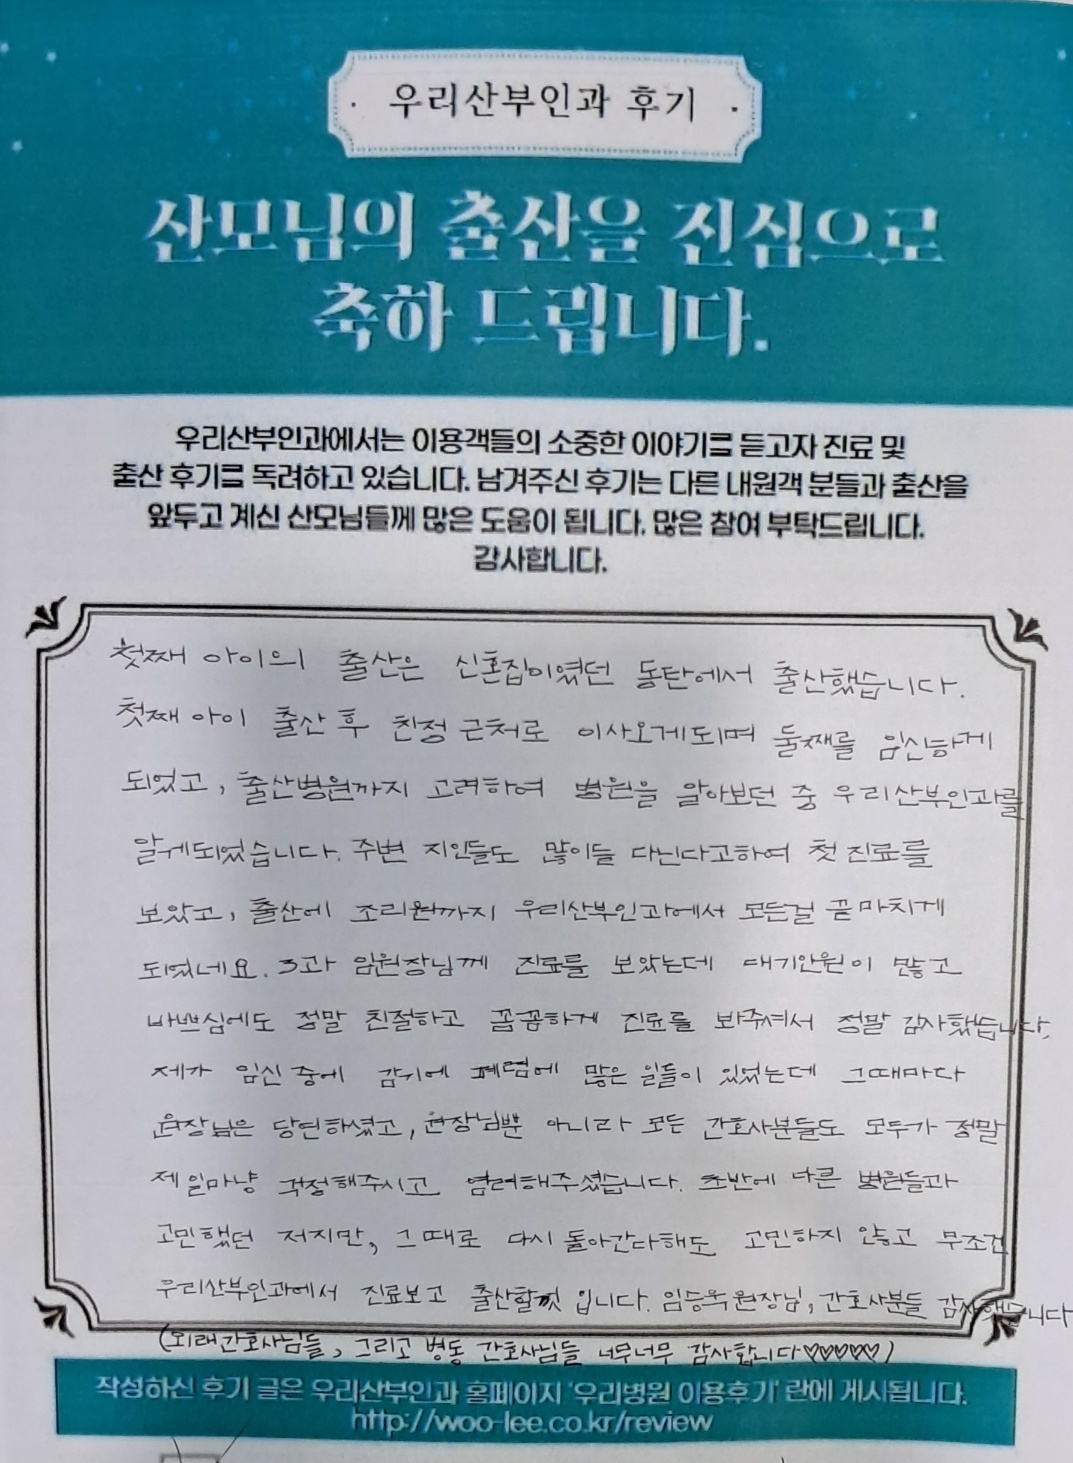 우리산부인과 후기
산모님의 출산을 진심으로
축하 드립니다.
우리산부인과에서는 이용객들의 소중한 이야기를 듣고자 진료 및
출산 후기를 독려하고 있습니다. 남겨주신 후기는 다른 내원객 분들과 출산을
앞두고 계신 산모님들께 많은 도움이 됩니다. 많은 참여 부탁드립니다.
감사합니다.
첫째 아이의 출산은 신혼집이였던 동탄에서 출산했습니다.
첫째 아이 출산 후 친정 근처로 이사오게되며 둘째를 임신하게
되었고, 출산병원까지 고려하여 병원을 알아보던 중 우리산부인과를
알게되었습니다. 주변 지인들도 많이들 다닌다고하여 첫 진료를
보았고, 출산에 조리원까지 우리산부인과에서 모든걸 끝마치게
되었네요. 3과 임원장님께 진료를 보았는데 대기인원이 많고
바쁘심에도 정말 친절하고 꼼꼼하게 진료를 봐주셔서 정말 감사했습니다.
제가 임신 중에 감기에 폐렴에 많은 일들이 있었는데 그때마다
원장님은 당연하셨고, 원장님뿐 아니라 모든 간호사분들도 모두가 정말
제 일마냥 걱정해주시고 염려해주셨습니다. 초반에 다른 병원들과
고민했던 저지만, 그 때로 다시 돌아간다해도 고민하지 않고 무조건
우리산부인과에서 진료보고 출산할것 입니다. 임승옥 원장님, 간호사분들 감사했습니다
(외래간호사님들, 그리고 병동 간호사님들 너무너무 감사합니다♡♡♡♡♡)
작성하신 후기 글은 우리산부인과 홈페이지 '우리병원 이용후기' 란에 게시됩니다.
http://woo-lee.co.kr/review